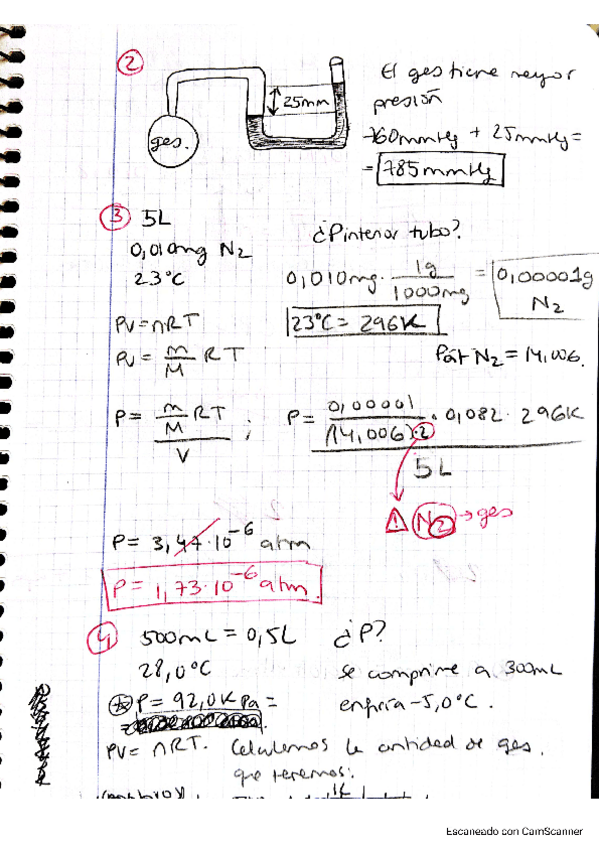 2
25mm
gas.
El gas tiene mayor
presión
760mmHg + 25mmHg =
= 785mmHg
3 5L
¿P interior tubo?
0,010mg N2
23°C
0,010mg · 1g / 1000mg = 0,00001g N2
23°C = 296K
PV = nRT
PV = m/M RT
Pat N2 = 14,006.
P = m/M RT / V ; P = 0,00001 / (14,006)·2 · 0,082 · 296K / 5L
⚠ N2 → gas
P = 3,47·10^-6 atm
P = 1,73·10^-6 atm.
4 500mL = 0,5L ¿P?
28,0°C se comprime a 300mL
* P = 92,0 KPa = enfría -5,0°C.
PV = nRT. Calculemos la cantidad de gas
que tenemos:
Escaneado con CamScanner